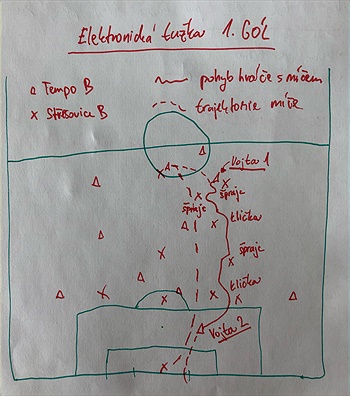 Elektronická tužka 1. GÓL
Δ Tempo B
pohyb hráče s míčem
x Střešovice B
trajektorie míče
Vojta 1
špráje
špráje
klička
špráje
klička
Vojta 2